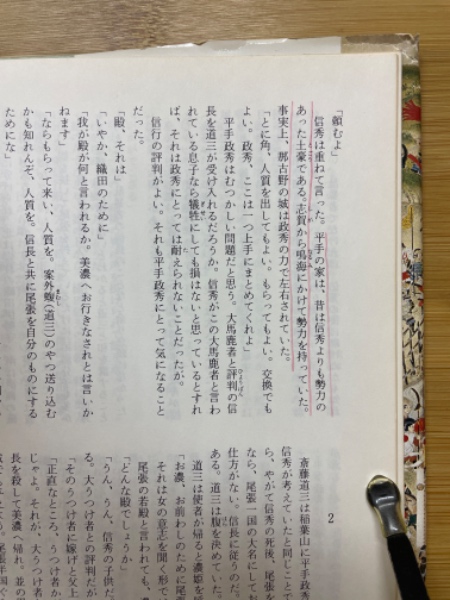 「頼むよ」
信秀は重ねて言った。平手の家は、昔は信秀よりも勢力の
あった土豪である。志賀から鳴海にかけて勢力を持っていた。
事実上、那古野の城は政秀の力で左右されていた。
「とに角、人質を出してもよい。もらってもよい。交換でも
よい。政秀、ここは一つ上手にまとめてくれよ」
平手政秀はむつかしい問題だと思う。大馬鹿者と評判の信
長を道三が受け入れるだろうか。信秀がこの大馬鹿者と言わ
れている息子なら犠牲にしても損はないと思っているとすれ
ば、それは政秀にとっては耐えられないことだったが。
信行の評判がよい。それも平手政秀にとって気になること
だった。
「殿、それは」
「いやか、織田のために」
「我が殿が何と言われるか。美濃へお行きなされとは言いか
ねます」
「ならもらって来い、人質を。案外蝮(道三)のやつ送り込む
かも知れんぞ、人質を。信長と共に尾張を自分のものにする
ためにな」
2
斎藤道三は稲葉山に平手政秀
信秀が考えていたと同じことで
ら、やがて信秀の死後、尾張を
なら、尾張一国の大名にしても
仕方がない。信長に従うのだ。
ある。道三は腹を決めていた。
道三は使者が帰ると濃姫を
「お濃、お前わしのために尾張
それは女の意志を聞く形で
尾張の若殿と言われても、
「どんな殿でしょうか」
「うん、うん、信秀の子供だ
る。大うつけ者との評判だが
「そのうつけ者に嫁げと父上
「正直なところ、うつけ者か
じゃよ。それが、大うつけ者
長を殺して美濃へ帰れ。並の